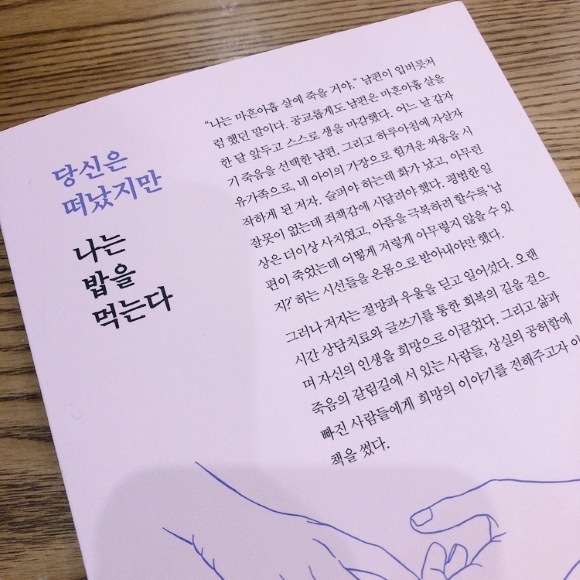 당신은
떠났지만
나는
밥을
먹는다
“나는 마흔아홉 살에 죽을 거야.” 남편이 입버릇처
럼 했던 말이다. 공교롭게도 남편은 마흔아홉 살을
한 달 앞두고 스스로 생을 마감했다. 어느 날 갑자
기 죽음을 선택한 남편, 그리고 하루아침에 자살자
유가족으로, 네 아이의 가장으로 힘겨운 싸움을 시
작하게 된 저자. 슬퍼야 하는데 화가 났고, 아무런
잘못이 없는데 죄책감에 시달려야 했다. 평범한 일
상은 더이상 사치였고, 아픔을 극복하려 할수록 '남
편이 죽었는데 어떻게 저렇게 아무렇지 않을 수 있
지?' 하는 시선들을 온몸으로 받아내야만 했다.
그러나 저자는 절망과 우울을 딛고 일어섰다. 오랜
시간 상담치료와 글쓰기를 통한 회복의 길을 걸으
며 자신의 인생을 희망으로 이끌었다. 그리고 삶과
죽음의 갈림길에 서 있는 사람들, 상실의 공허함에
빠진 사람들에게 희망의 이야기를 전해주고자 이
책을 썼다.